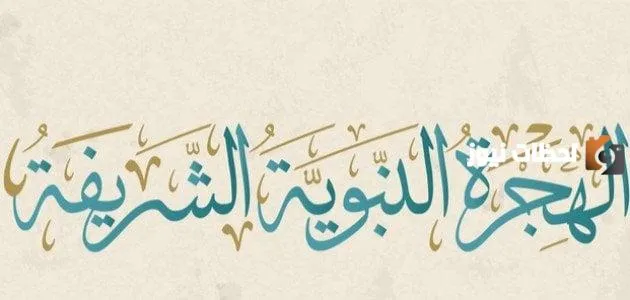 الهِجرَةُ النَّبَوِيَّةُ الشَّرِيفَةُ
لحظات نيوز